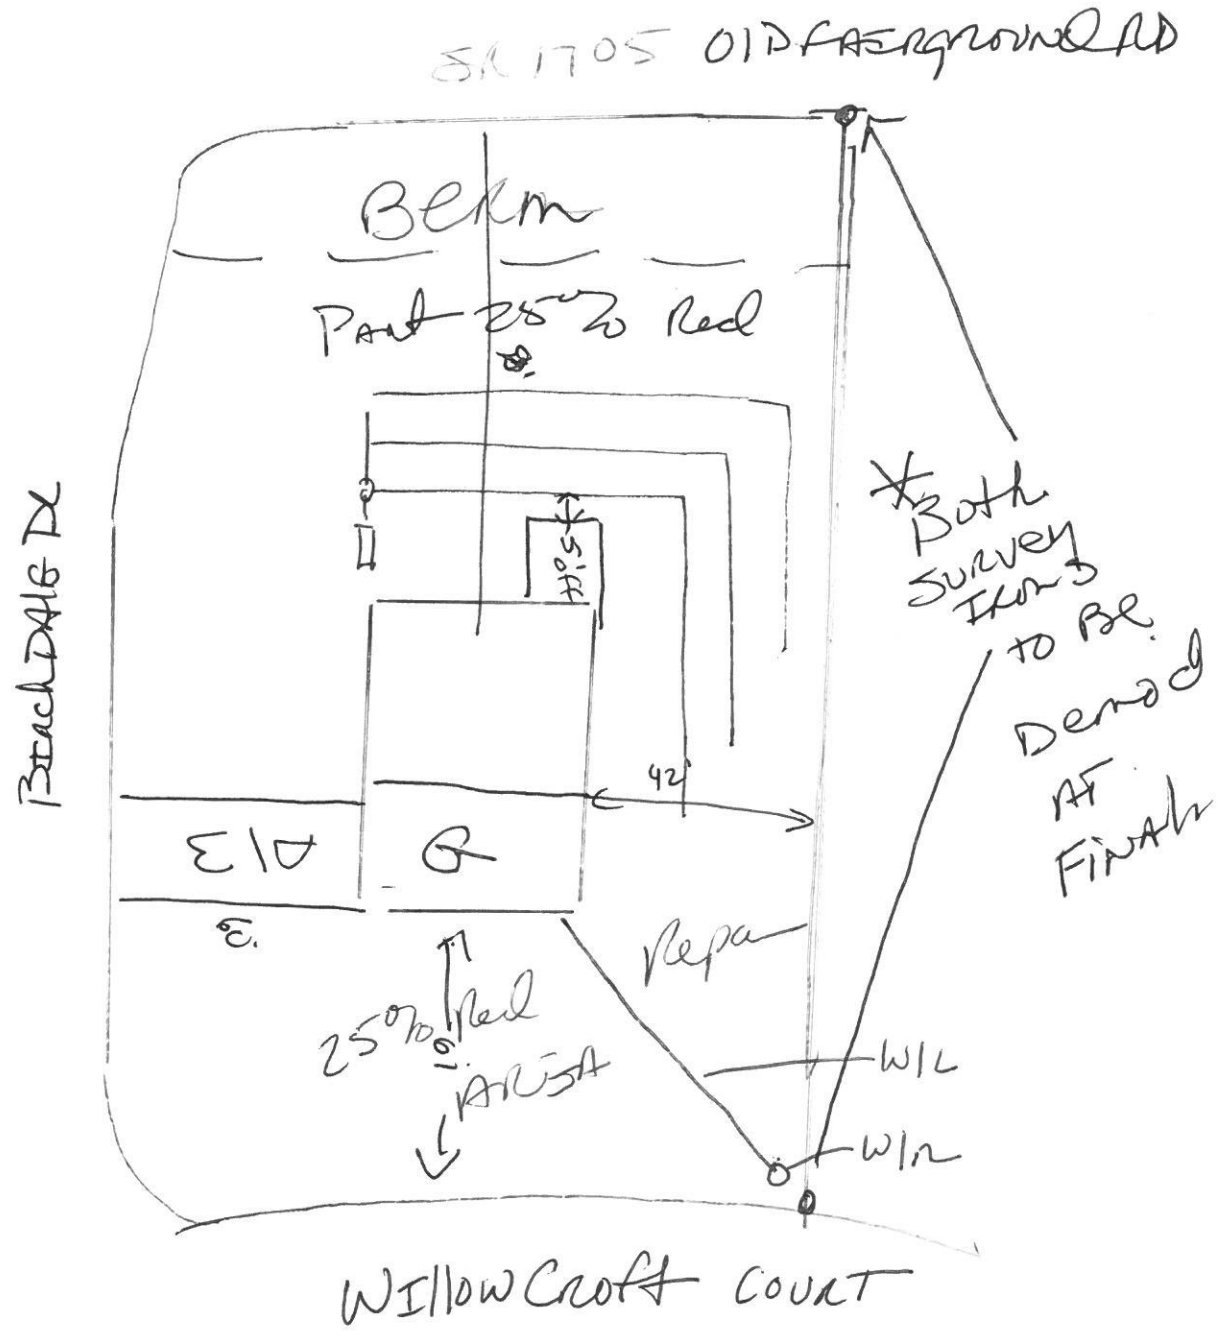 SR 1705 OlD FAERGROUND RD
Berm
Part 25% Red
BEachDAlE DR
5' off
* Both
SURVEY
IRONS
to BE
Demo'd
AT
FINAL
42'
D/W
G
Repa
25% Red
AREA
W/L
W/M
WIllowCRoft COURT